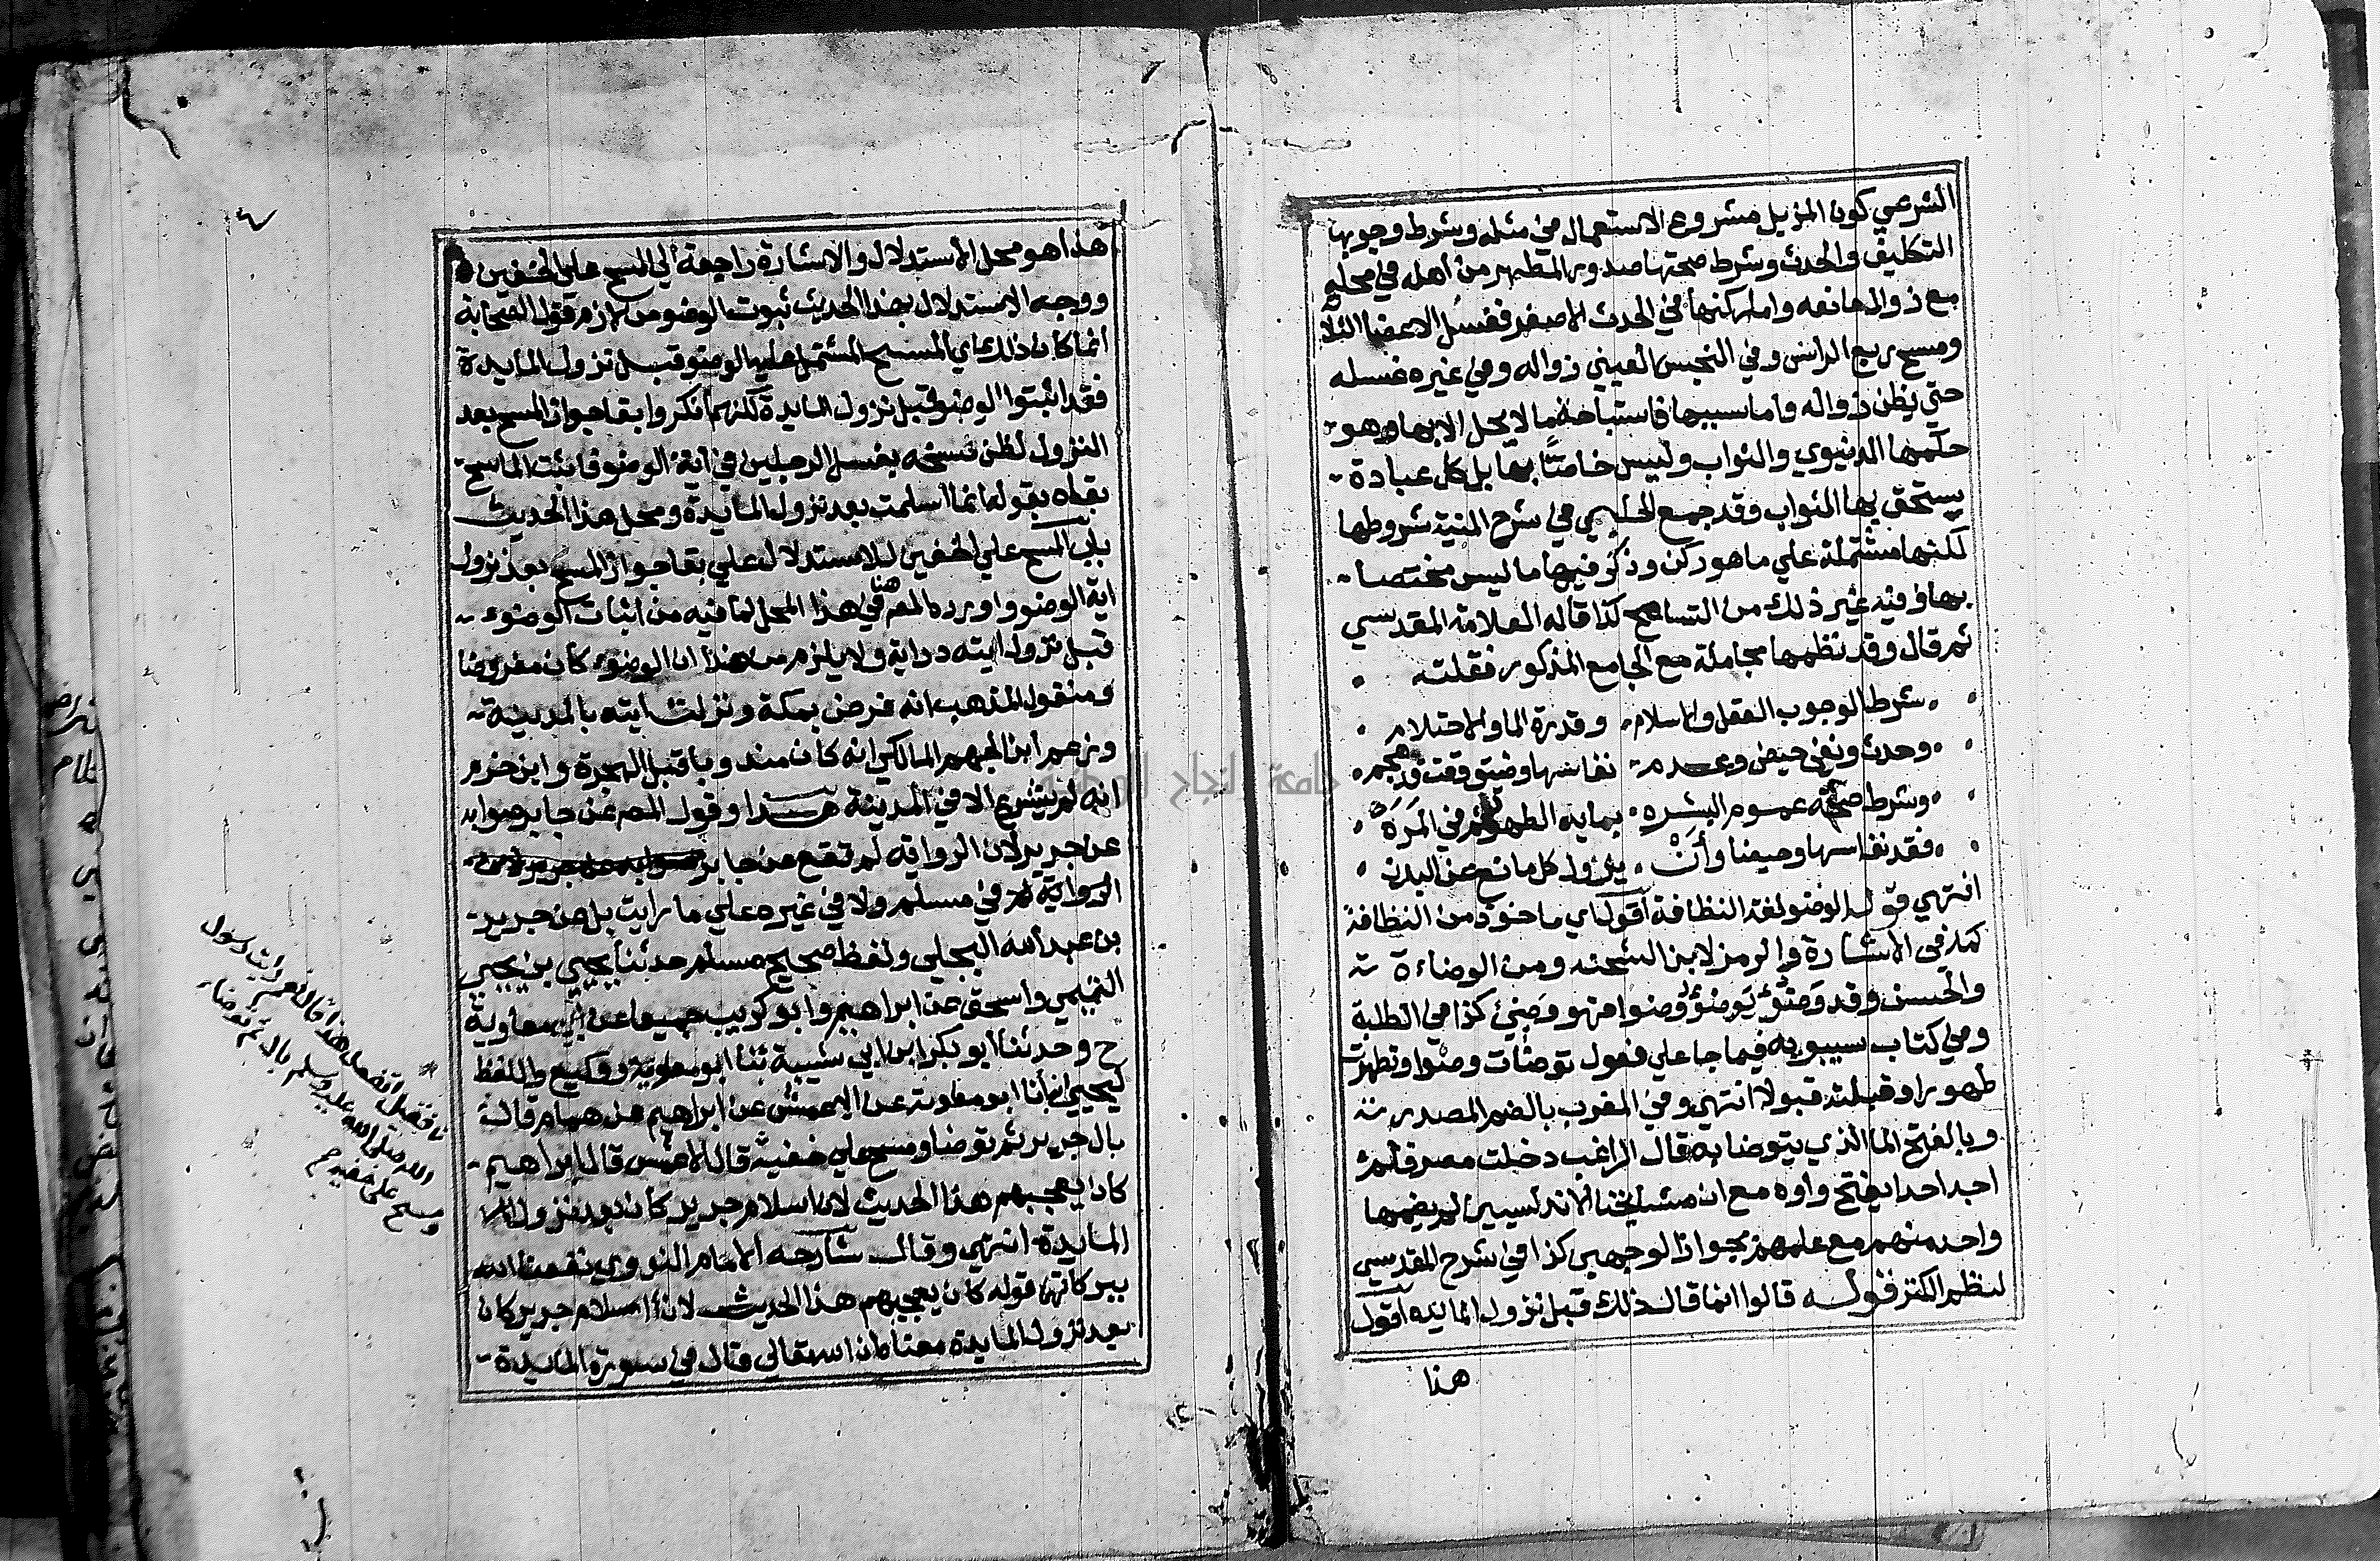 الشرعي كون المزيل مشروع الاستعمال في مثله وشرط وجوبها
التكليف والحدث وشرط صحتها صدور المطهر من أهله في محله
مع زوال مانعه واما ركنها في الحدث الاصغر فغسل الاعضا الثلاثة
ومسح ربع الراس وفي النجس العيني زواله وفي غيره غسله
حتي يظن زواله واما سببها فاستباحة ما لا يحل الا بها وهو
حكمها الدنيوي والثواب وليس خاصتا بها بل كل عبادة
يستحق بها الثواب وقد جمع الحلبي في شرح المنية شروطها
لكنها مشتملة علي ما هو ركن وذكر فيها ما ليس مختصا
بها وفيه غير ذلك من التسامح كذا قاله العلامة المقدسي
ثم قال وقد نظمها مجاملة مع الجامع المذكور فقلت
شرط الوجوب العقل والاسلام وقدرة الما والاحتلام
وحدث ونفي حيض وعدم نفاسها وضيق وقت قد هجم
وشرط صحة عموم البشره بمايه الطهور ثم في المره
فقد نفاسها وحيضا وأن يزول كل مانع عن البدن
انتهي قوله الوضو لغة النظافة أقول أي ماخوذ من النظافة
كما في الاشارة والرمز لابن الشحنه ومن الوضاءة
والحسن وقد وضؤ يوضؤ وضوا فهو وضئ كذا في الطلبة
وفي كتاب سيبويه فيما جا علي فعول توضات وضوا وتطهرت
طهورا وقبلته قبولا انتهي وفي المغرب بالضم المصدر
وبالفتح الما الذي يتوضا به قال الراغب دخلت مصر فلم
اجد احدا يفتح واوه مع ان مشايخنا الاندلسيين لم يضمها
واحد منهم مع علمهم بجواز الوجهين كذا في شرح المقدسي
لنظم الكنز قوله قالوا انما قال ذلك قبل نزول المايده اقول
هذا
هذا هو محل الاستدلال والاشارة راجعة الي المسح علي الخفين
ووجه الاستدلال بهذا الحديث ثبوت الوضو من لازم قول الصحابة
انما كان ذلك اي المسح المشتمل عليه الوضو قبل نزول المايدة
فقد اثبتوا الوضو قبل نزول المايدة لكنهم انكروا بقا جواز المسح بعد
النزول لظن نسخه بغسل الرجلين في آية الوضو فاثبت الماسح
بقاه بقوله انما أسلمت بعد نزول المايدة ومحل هذا الحديث
باب المسح علي الخفين للاستدلال علي بقا جواز المسح بعد نزول
اية الوضو واورده المصر في هذا المحل لما فيه من اثبات الوضوء
قبل نزول ايته دراية ولا يلزم من هذا ان الوضوء كان مفروضا
ومنقول المذهب انه فرض بمكة ونزلت ايته بالمدينة
وزعم ابن الجهم المالكي انه كان مندوبا قبل الهجرة وابن حزم
انه لم يشرع الا في المدينة هذا وقول المصر عن جابر صوابه
عن جرير لان الرواية لم تقع عن جابر
في مسلم ولا في غيره علي ما رايت بل عن جرير
بن عبد الله البجلي ولفظ صحيح مسلم حدثنا يحيي بن يحيي
التميمي واسحق بن ابراهيم وابو كريب جميعا عن أبي معاوية
ح وحدثنا ابو بكر ابن ابي شيبة ثنا ابو معاوية ووكيع واللفظ
ليحيي انبأنا ابو معاوية عن الاعمش عن ابراهيم عن همام قال
بال جرير ثم توضا ومسح علي خفيه قال الاعمش قال ابراهيم
كان يعجبهم هذا الحديث لان اسلام جرير كان بعد نزول
المايدة انتهي وقال شارحه الامام النووي نفعنا الله
ببركاته قوله كان يعجبهم هذا الحديث لان اسلام جرير كان
بعد نزول المايدة معناه ان الله تعالي قال في سورة المايدة
فقيل اتفعل هذا قال نعم رايت رسول
الله صلى الله عليه وسلم بال ثم توضاء
ومسح على خفيه
جامعة النجاح الوطنية